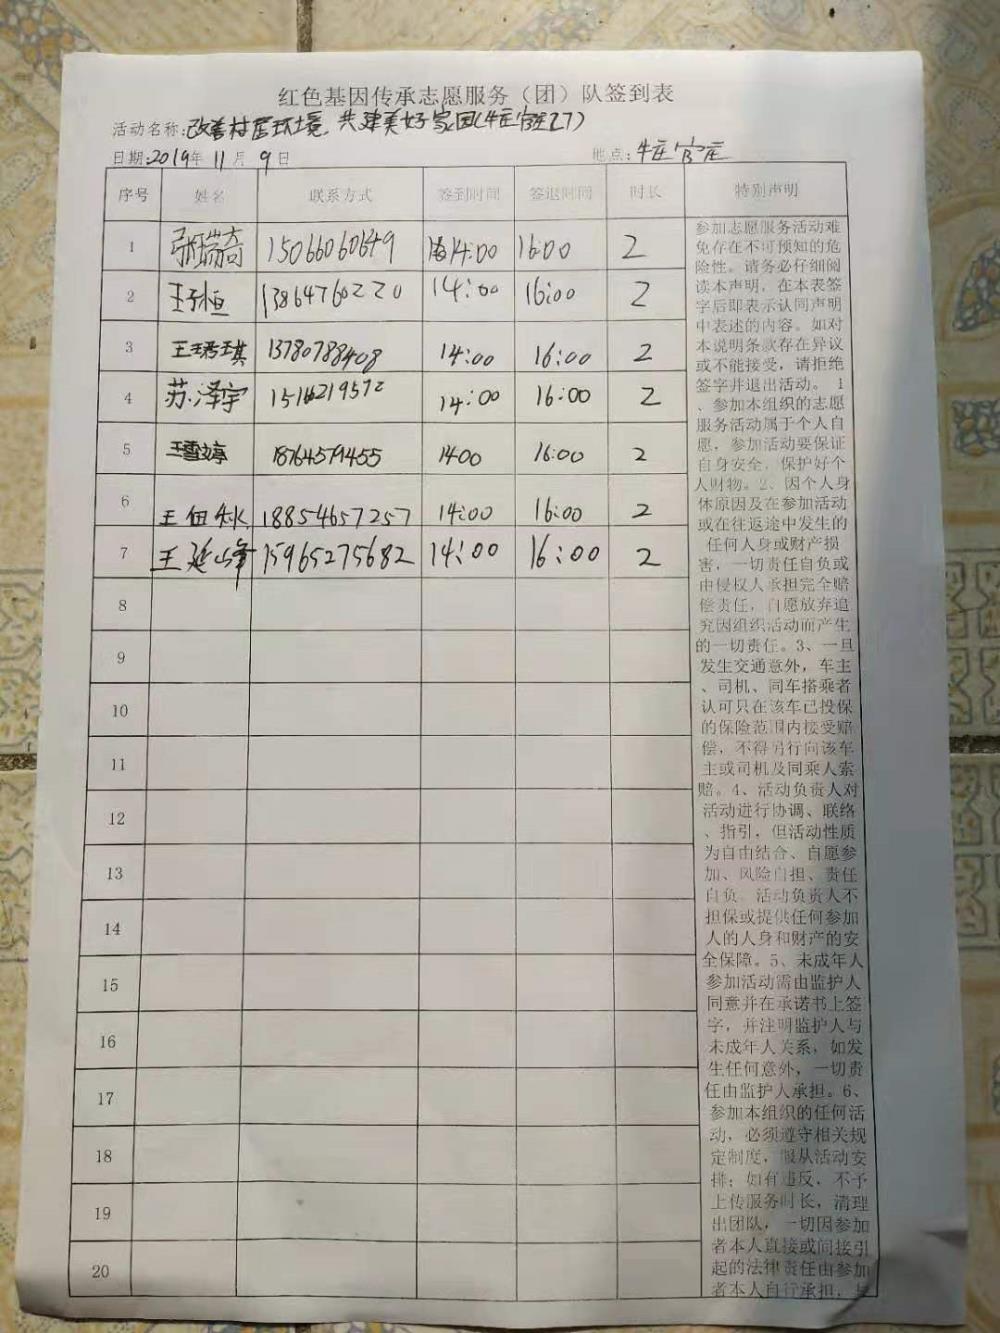 红色基因传承志愿服务（团）队签到表
活动名称:改善村居环境 共建美好家园(牛庄官庄27)
日期:2019年11月9日 地点:牛庄官庄
序号 姓名 联系方式 签到时间 签退时间 时长 特别声明
1 张瑞奇 15066060649 14:00 16:00 2
2 王子恒 13864760220 14:00 16:00 2
3 王琪 13780788408 14:00 16:00 2
4 苏泽宇 15162219572 14:00 16:00 2
5 王雪婷 18764579455 1400 16:00 2
6 王 18854657257 14:00 16:00 2
7 王延峰 15965275682 14:00 16:00 2
8
9
10
11
12
13
14
15
16
17
18
19
20
参加志愿服务活动难
免存在不可预知的危
险性。请务必仔细阅
读本声明，在本表签
字后即表示认同声明
中表述的内容。如对
本说明条款存在异议
或不能接受，请拒绝
签字并退出活动。 1
、参加本组织的志愿
服务活动属于个人自
愿，参加活动要保证
自身安全，保护好个
人财物。2、因个人身
体原因及在参加活动
或在往返途中发生的
任何人身或财产损
害，一切责任自负或
由侵权人承担完全赔
偿责任，自愿放弃追
究因组织活动而产生
的一切责任。3、一旦
发生交通意外，车主
、司机、同车搭乘者
认可只在该车已投保
的保险范围内接受赔
偿，不得另行向该车
主或司机及同乘人索
赔。4、活动负责人对
活动进行协调、联络
、指引，但活动性质
为自由结合、自愿参
加、风险自担、责任
自负。活动负责人不
担保或提供任何参加
人的人身和财产的安
全保障。5、未成年人
参加活动需由监护人
同意并在承诺书上签
字，并注明监护人与
未成年人关系，如发
生任何意外，一切责
任由监护人承担。6、
参加本组织的任何活
动，必须遵守相关规
定制度，服从活动安
排；如有违反，不予
上传服务时长，清理
出团队，一切因参加
者本人直接或间接引
起的法律责任由参加
者本人自行承担，与